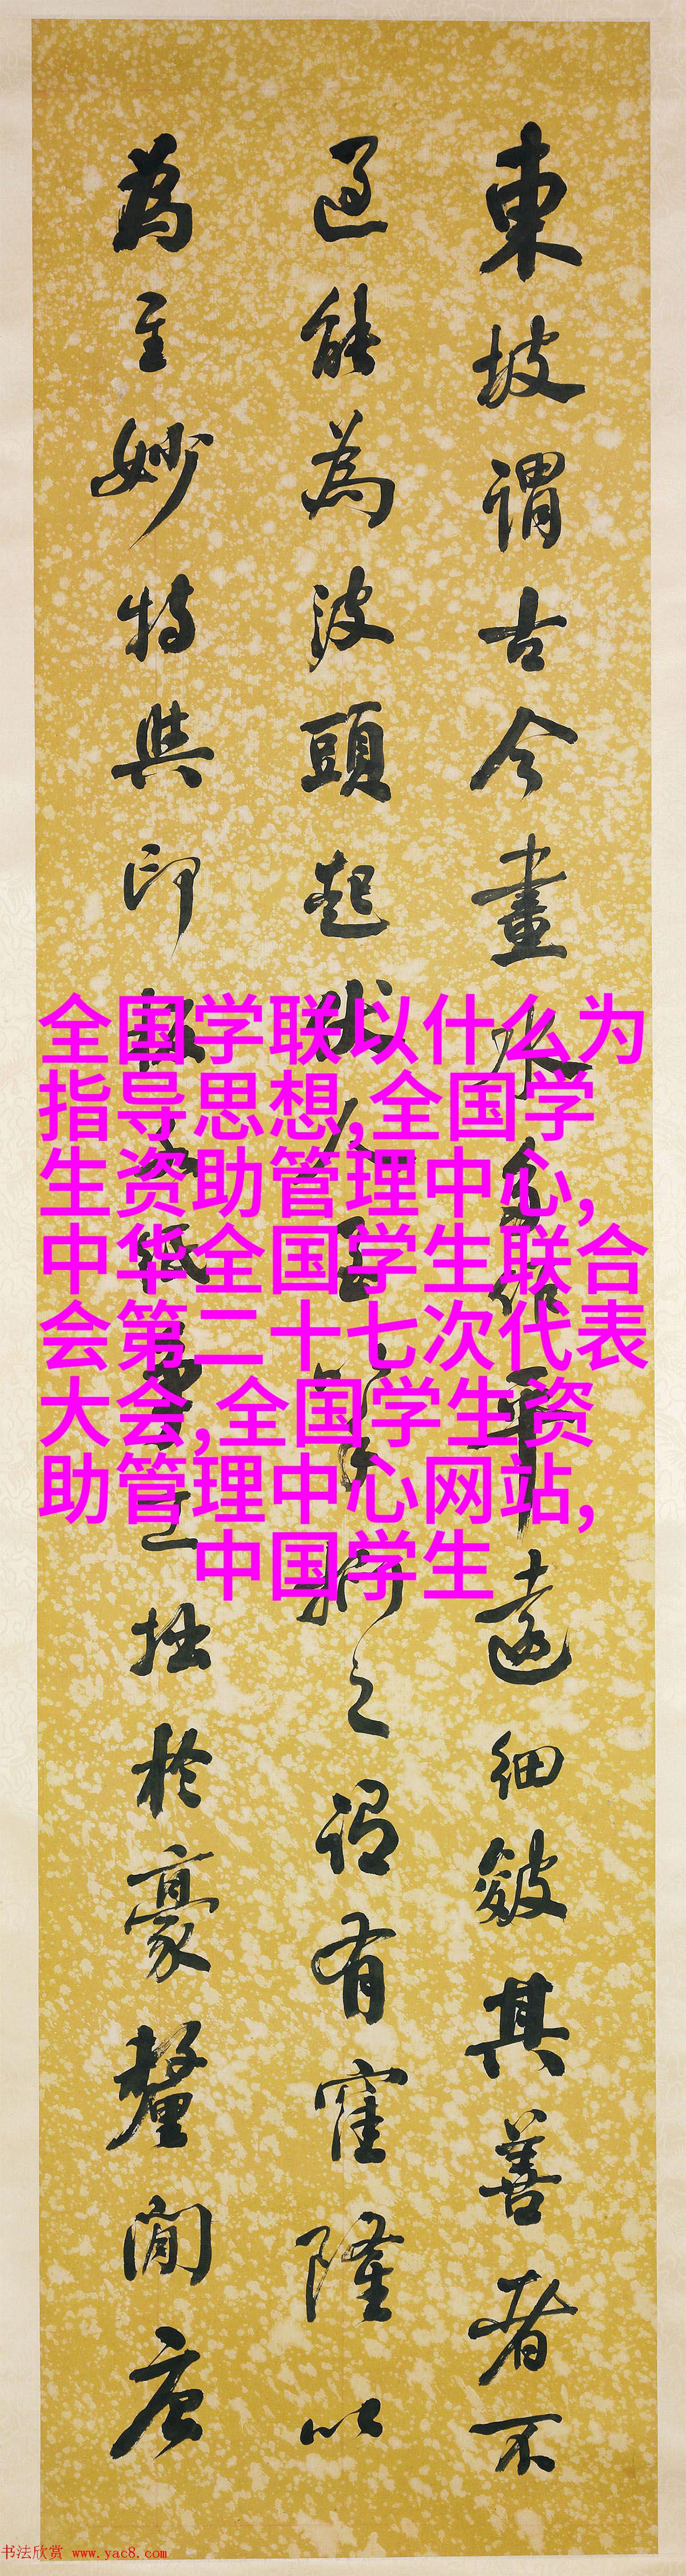 東坡謂古今畫水多作平遠細皴其善者不
過能為波頭起伏人至以手捫之謂有窪隆以
為至妙特與印板水紙爭工拙於豪釐間唐
全国学联以什么为
指导思想,全国学
生资助管理中心,
中华全国学生联合
会第二十七次代表
大会,全国学生资
助管理中心网站,
中国学生
书法欣赏 www.yac8.com